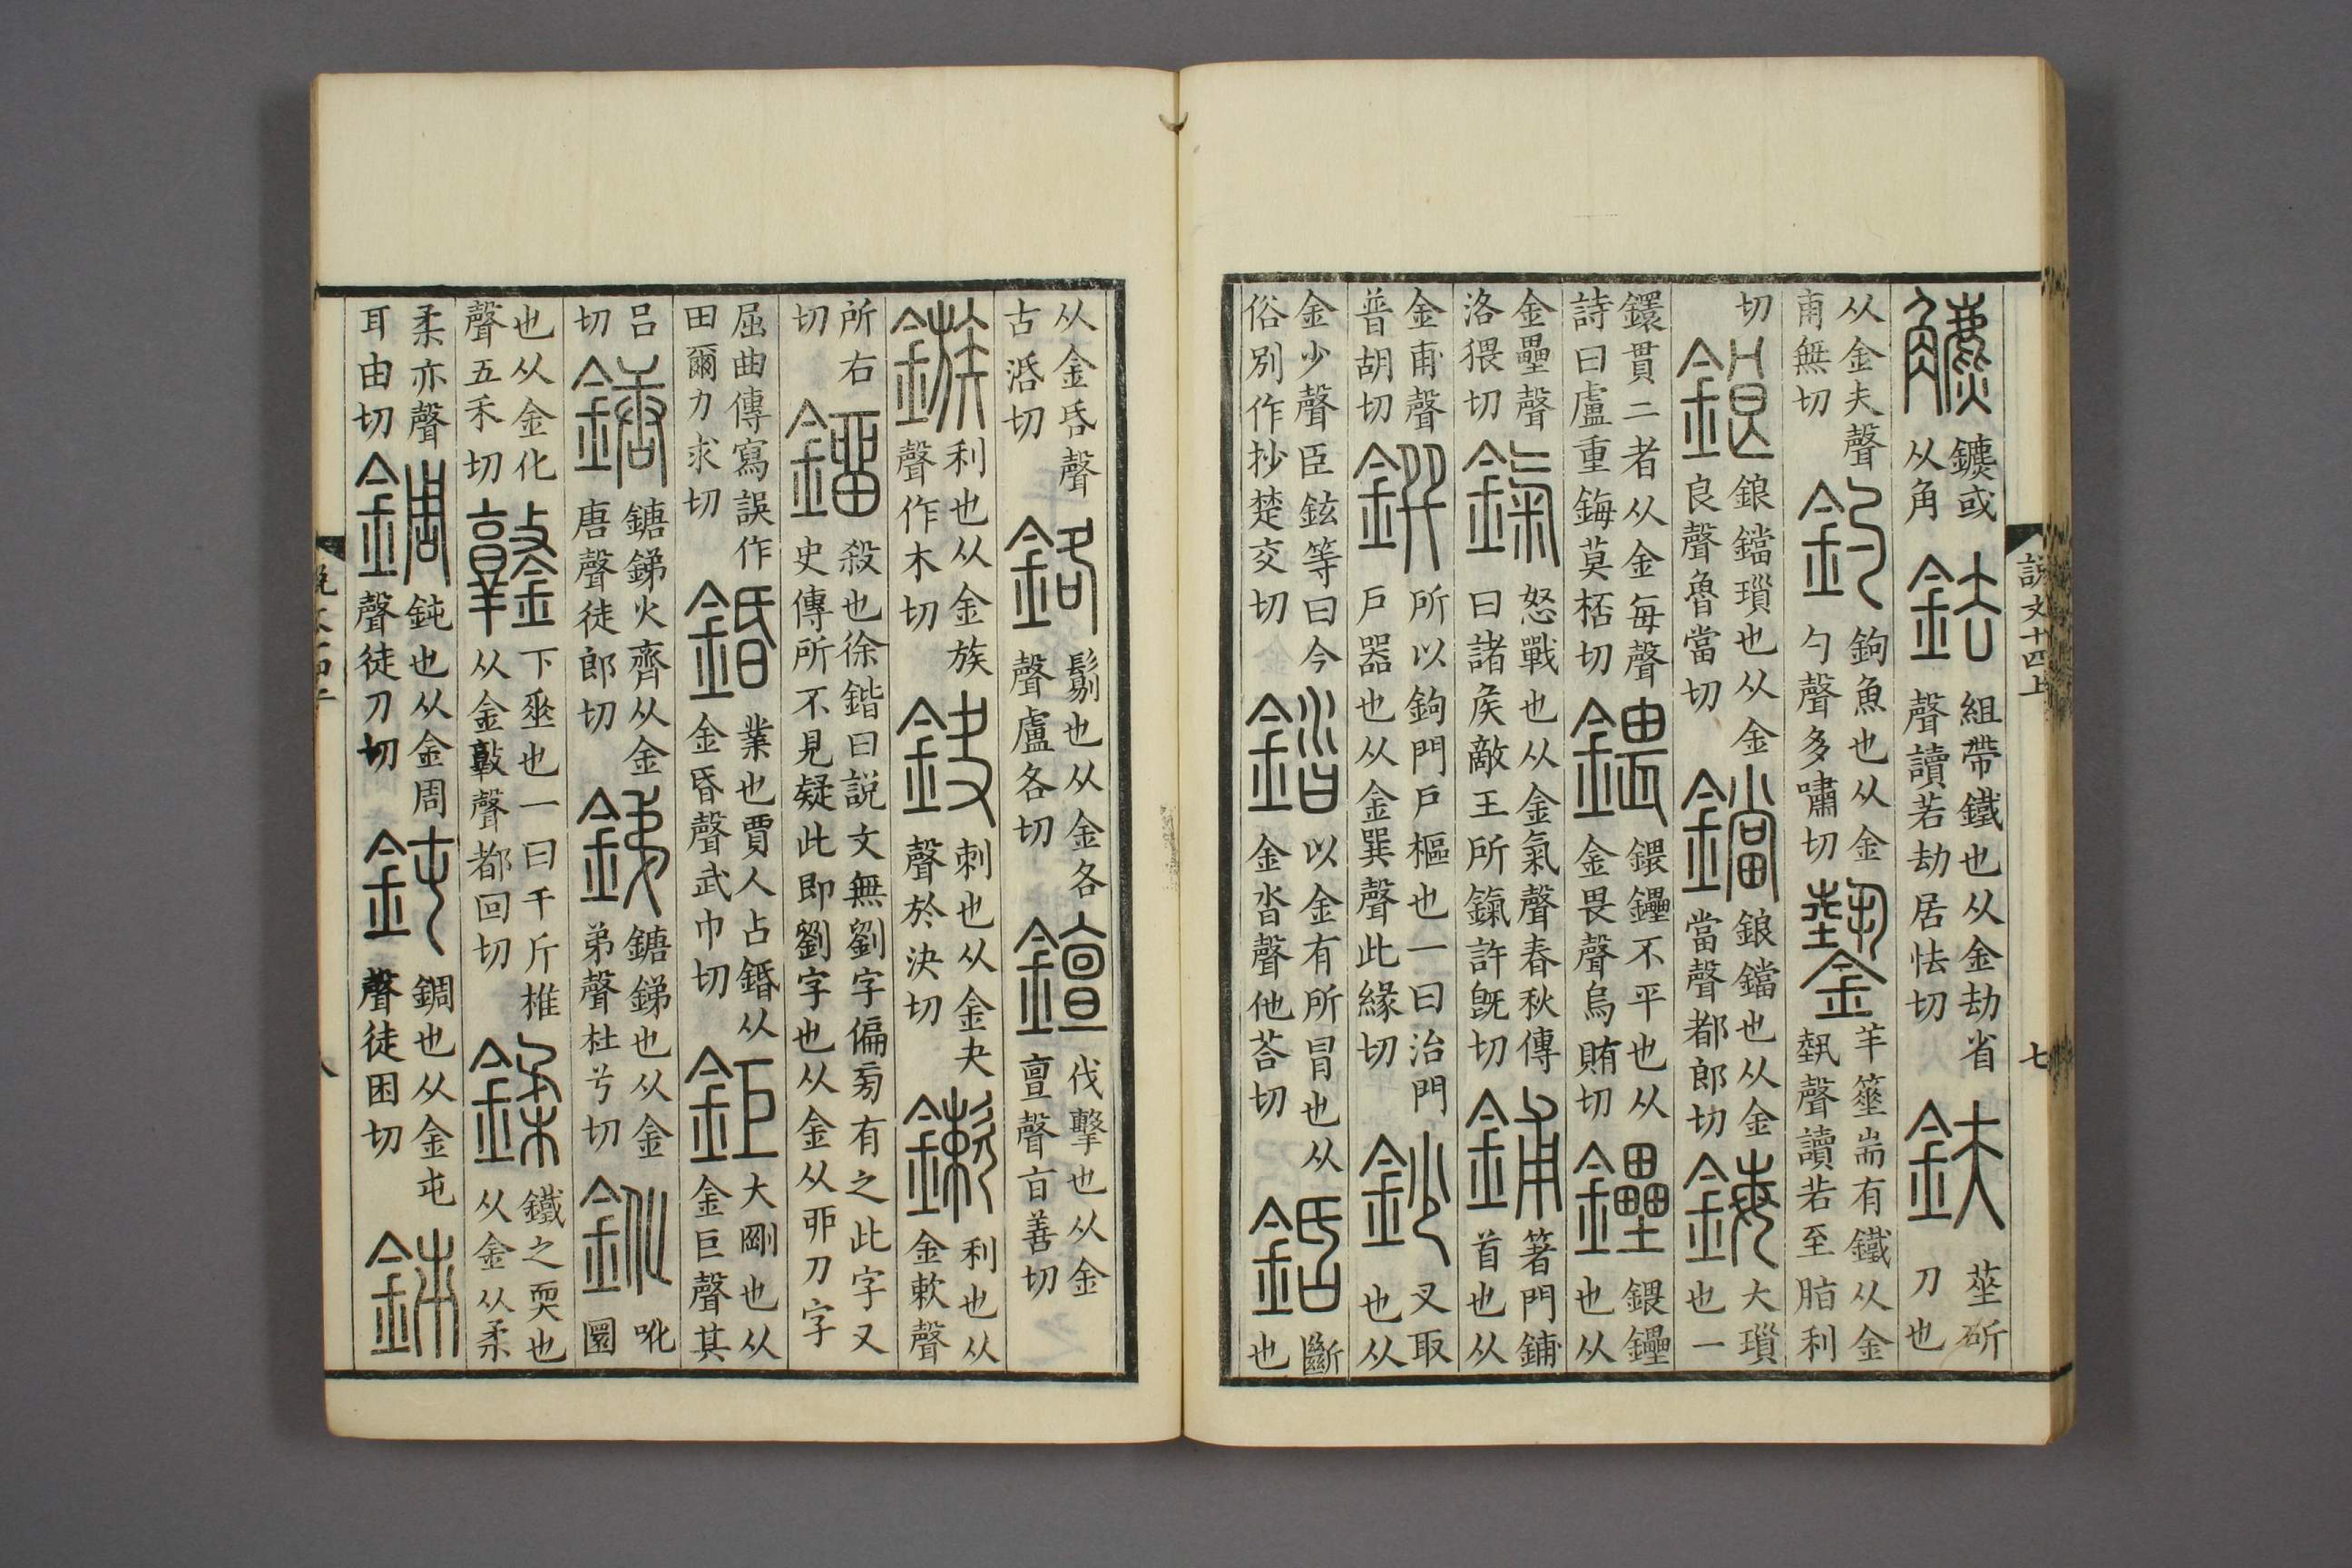 說文十四上 七
鑣或从角 鉣 組帶鐵也从金劫省聲讀若劫居怯切 鈇 莝斫刀也
从金夫聲甫無切 釣 鉤魚也从金勺聲多嘯切 羊箠耑有鐵从金埶聲讀若至脂利
切 鋃 鋃鐺瑣也从金良聲魯當切 鐺 鋃鐺也从金當聲都郎切 鋂 大瑣也一
鐶貫二者从金每聲詩曰盧重鋂莫桮切 鍡 鍡鑸不平也从金畏聲烏賄切 鑸 鍡鑸也从
金壘聲洛猥切 鎎 怒戰也从金氣聲春秋傳曰諸矦敵王所鎎許旣切 鋪 箸門鋪首也从
金甫聲普胡切 鐉 所以鉤門戶樞也一曰治門戶器也从金巽聲此緣切 鈔 叉取也从
金少聲臣鉉等曰今俗別作抄楚交切 錔 以金有所冒也从金沓聲他荅切 銽 斷也
从金昏聲古活切 鉻 鬀也从金各聲盧各切 伐擊也从金亶聲旨善切
鏃 利也从金族聲作木切 鈌 刺也从金夬聲於決切 鏉 利也从金欶聲
所右切 鎦 殺也徐鍇曰說文無劉字偏㫄有之此字又史傳所不見疑此即劉字也从金从丣刀字
屈曲傳寫誤作田爾力求切 錉 業也賈人占錉从金昏聲武巾切 鉅 大剛也从金巨聲其
呂切 鎕 鎕銻火齊从金唐聲徒郎切 銻 鎕銻也从金弟聲杜兮切 鈋 吪圜
也从金化聲五禾切 鐜 下垂也一曰千斤椎从金敦聲都回切 鍒 鐵之耎也从金从柔
柔亦聲耳由切 錭 鈍也从金周聲徒刀切 鈍 錭也从金屯聲徒困切 鈰